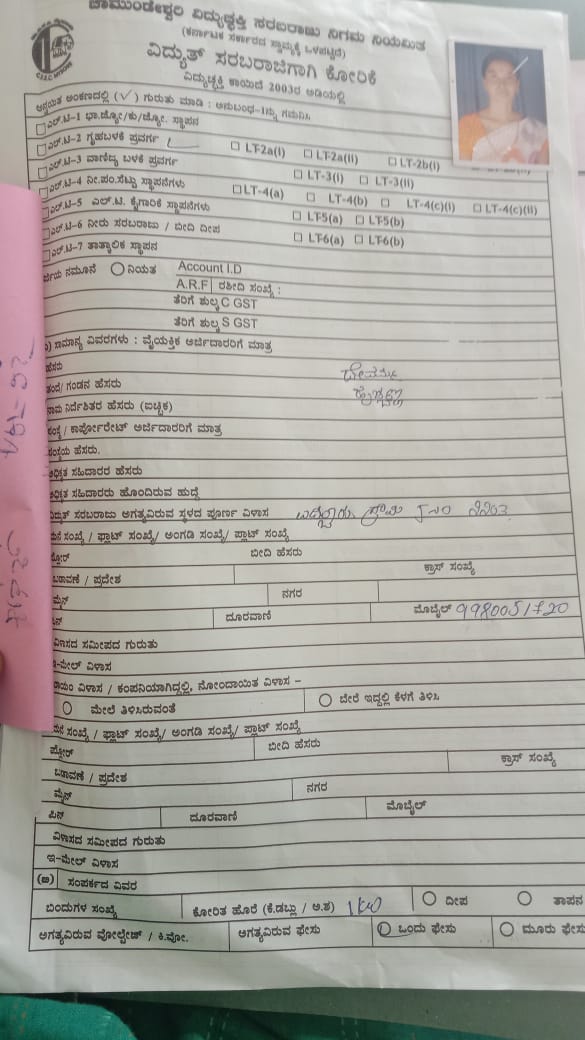 ಚಾಮುಂಡೇಶ್ವರಿ ವಿದ್ಯುಚ್ಛಕ್ತಿ ಸರಬರಾಜು ನಿಗಮ ನಿಯಮಿತ
(ಕರ್ನಾಟಕ ಸರ್ಕಾರದ ಸ್ವಾಮ್ಯಕ್ಕೆ ಒಳಪಟ್ಟಿದೆ)
ವಿದ್ಯುತ್ ಸರಬರಾಜಿಗಾಗಿ ಕೋರಿಕೆ
ವಿದ್ಯುಚ್ಛಕ್ತಿ ಕಾಯಿದೆ 2003ರ ಅಡಿಯಲ್ಲಿ
ಅನ್ವಯಿತ ಅಂಕಣದಲ್ಲಿ (✓) ಗುರುತು ಮಾಡಿ : ಅನುಬಂಧ-1ನ್ನು ಗಮನಿಸಿ
ಎಲ್.ಟಿ-1 ಭಾ.ಜ್ಯೋ/ಕು/ಜ್ಯೋ. ಸ್ಥಾಪನ
ಎಲ್.ಟಿ-2 ಗೃಹಬಳಕೆ ಪ್ರವರ್ಗ LT-2a(I) LT-2a(II) LT-2b(I)
ಎಲ್.ಟಿ-3 ವಾಣಿಜ್ಯ ಬಳಕೆ ಪ್ರವರ್ಗ LT-3(I) LT-3(II)
ಎಲ್.ಟಿ-4 ನೀ.ಪಂ.ಸೆಟ್ಟು ಸ್ಥಾಪನೆಗಳು LT-4(a) LT-4(b) LT-4(c)(I) LT-4(c)(II)
ಎಲ್.ಟಿ-5 ಎಲ್.ಟಿ. ಕೈಗಾರಿಕೆ ಸ್ಥಾಪನೆಗಳು LT-5(a) LT-5(b)
ಎಲ್.ಟಿ-6 ನೀರು ಸರಬರಾಜು / ಬೀದಿ ದೀಪ LT-6(a) LT-6(b)
ಎಲ್.ಟಿ-7 ತಾತ್ಕಾಲಿಕ ಸ್ಥಾಪನ
ನಮೂನೆ ನಿಯತ Account I.D
A.R.F ರಶೀದಿ ಸಂಖ್ಯೆ :
ತೆರಿಗೆ ಶುಲ್ಕ C GST
ತೆರಿಗೆ ಶುಲ್ಕ S GST
ಸಾಮಾನ್ಯ ವಿವರಗಳು : ವೈಯಕ್ತಿಕ ಅರ್ಜಿದಾರರಿಗೆ ಮಾತ್ರ
ಹೆಸರು
ತಂದೆ/ ಗಂಡನ ಹೆಸರು
ನಾಮ ನಿರ್ದೇಶಿತರ ಹೆಸರು (ಐಚ್ಛಿಕ)
ಸಂಸ್ಥೆ / ಕಾರ್ಪೋರೇಟ್ ಅರ್ಜಿದಾರರಿಗೆ ಮಾತ್ರ
ಸಂಸ್ಥೆಯ ಹೆಸರು.
ಅಧಿಕೃತ ಸಹಿದಾರರ ಹೆಸರು
ಅಧಿಕೃತ ಸಹಿದಾರರು ಹೊಂದಿರುವ ಹುದ್ದೆ
ವಿದ್ಯುತ್ ಸರಬರಾಜು ಅಗತ್ಯವಿರುವ ಸ್ಥಳದ ಪೂರ್ಣ ವಿಳಾಸ ಗ್ರಾಮ
ಮನೆ ಸಂಖ್ಯೆ / ಫ್ಲಾಟ್ ಸಂಖ್ಯೆ/ ಅಂಗಡಿ ಸಂಖ್ಯೆ/ ಪ್ಲಾಟ್ ಸಂಖ್ಯೆ
ಫ್ಲೋರ್ ಬೀದಿ ಹೆಸರು
ಬಡಾವಣೆ / ಪ್ರದೇಶ ಕ್ರಾಸ್ ಸಂಖ್ಯೆ
ಮೈನ್ ನಗರ
ಪಿನ್ ದೂರವಾಣಿ ಮೊಬೈಲ್ 9980051720
ವಿಳಾಸದ ಸಮೀಪದ ಗುರುತು
ಇ-ಮೇಲ್ ವಿಳಾಸ
ಖಾಯಂ ವಿಳಾಸ / ಕಂಪನಿಯಾಗಿದ್ದಲ್ಲಿ, ನೋಂದಾಯಿತ ವಿಳಾಸ –
ಮೇಲೆ ತಿಳಿಸಿರುವಂತೆ ಬೇರೆ ಇದ್ದಲ್ಲಿ ಕೆಳಗೆ ತಿಳಿಸಿ
ಮನೆ ಸಂಖ್ಯೆ / ಫ್ಲಾಟ್ ಸಂಖ್ಯೆ/ ಅಂಗಡಿ ಸಂಖ್ಯೆ/ ಪ್ಲಾಟ್ ಸಂಖ್ಯೆ
ಫ್ಲೋರ್ ಬೀದಿ ಹೆಸರು
ಬಡಾವಣೆ / ಪ್ರದೇಶ ಕ್ರಾಸ್ ಸಂಖ್ಯೆ
ಮೈನ್ ನಗರ
ಪಿನ್ ದೂರವಾಣಿ ಮೊಬೈಲ್
ವಿಳಾಸದ ಸಮೀಪದ ಗುರುತು
ಇ-ಮೇಲ್ ವಿಳಾಸ
ಸಂಪರ್ಕದ ವಿವರ
ಬಿಂದುಗಳ ಸಂಖ್ಯೆ ಕೋರಿತ ಹೊರೆ (ಕೆ.ಡಬ್ಲು / ಅ.ಶ) 1KW ದೀಪ ತಾಪನ
ಅಗತ್ಯವಿರುವ ವೋಲ್ಟೇಜ್ / ಕಿ.ವೋ. ಅಗತ್ಯವಿರುವ ಫೇಸು ಒಂದು ಫೇಸು ಮೂರು ಫೇಸು